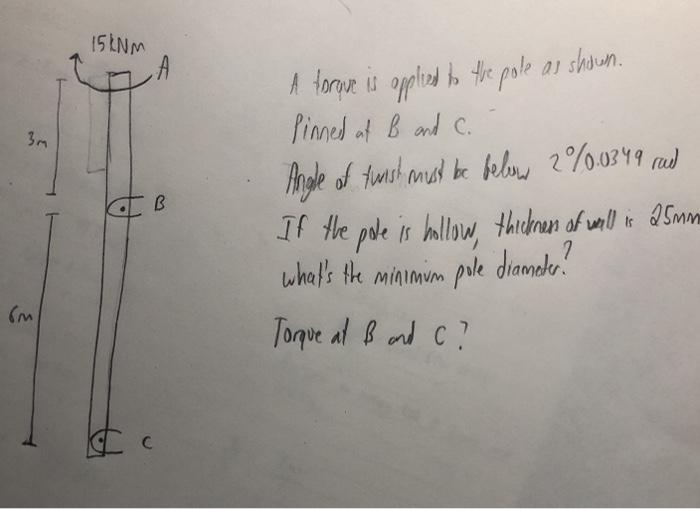 15kNm
A
3m
B
6m
C
A torque is applied to the pole as shown.
Pinned at B and C.
Angle of twist must be below 2°/0.0349 rad
If the pole is hollow, thickness of wall is 25mm
what's the minimum pole diameter?
Torque at B and C?